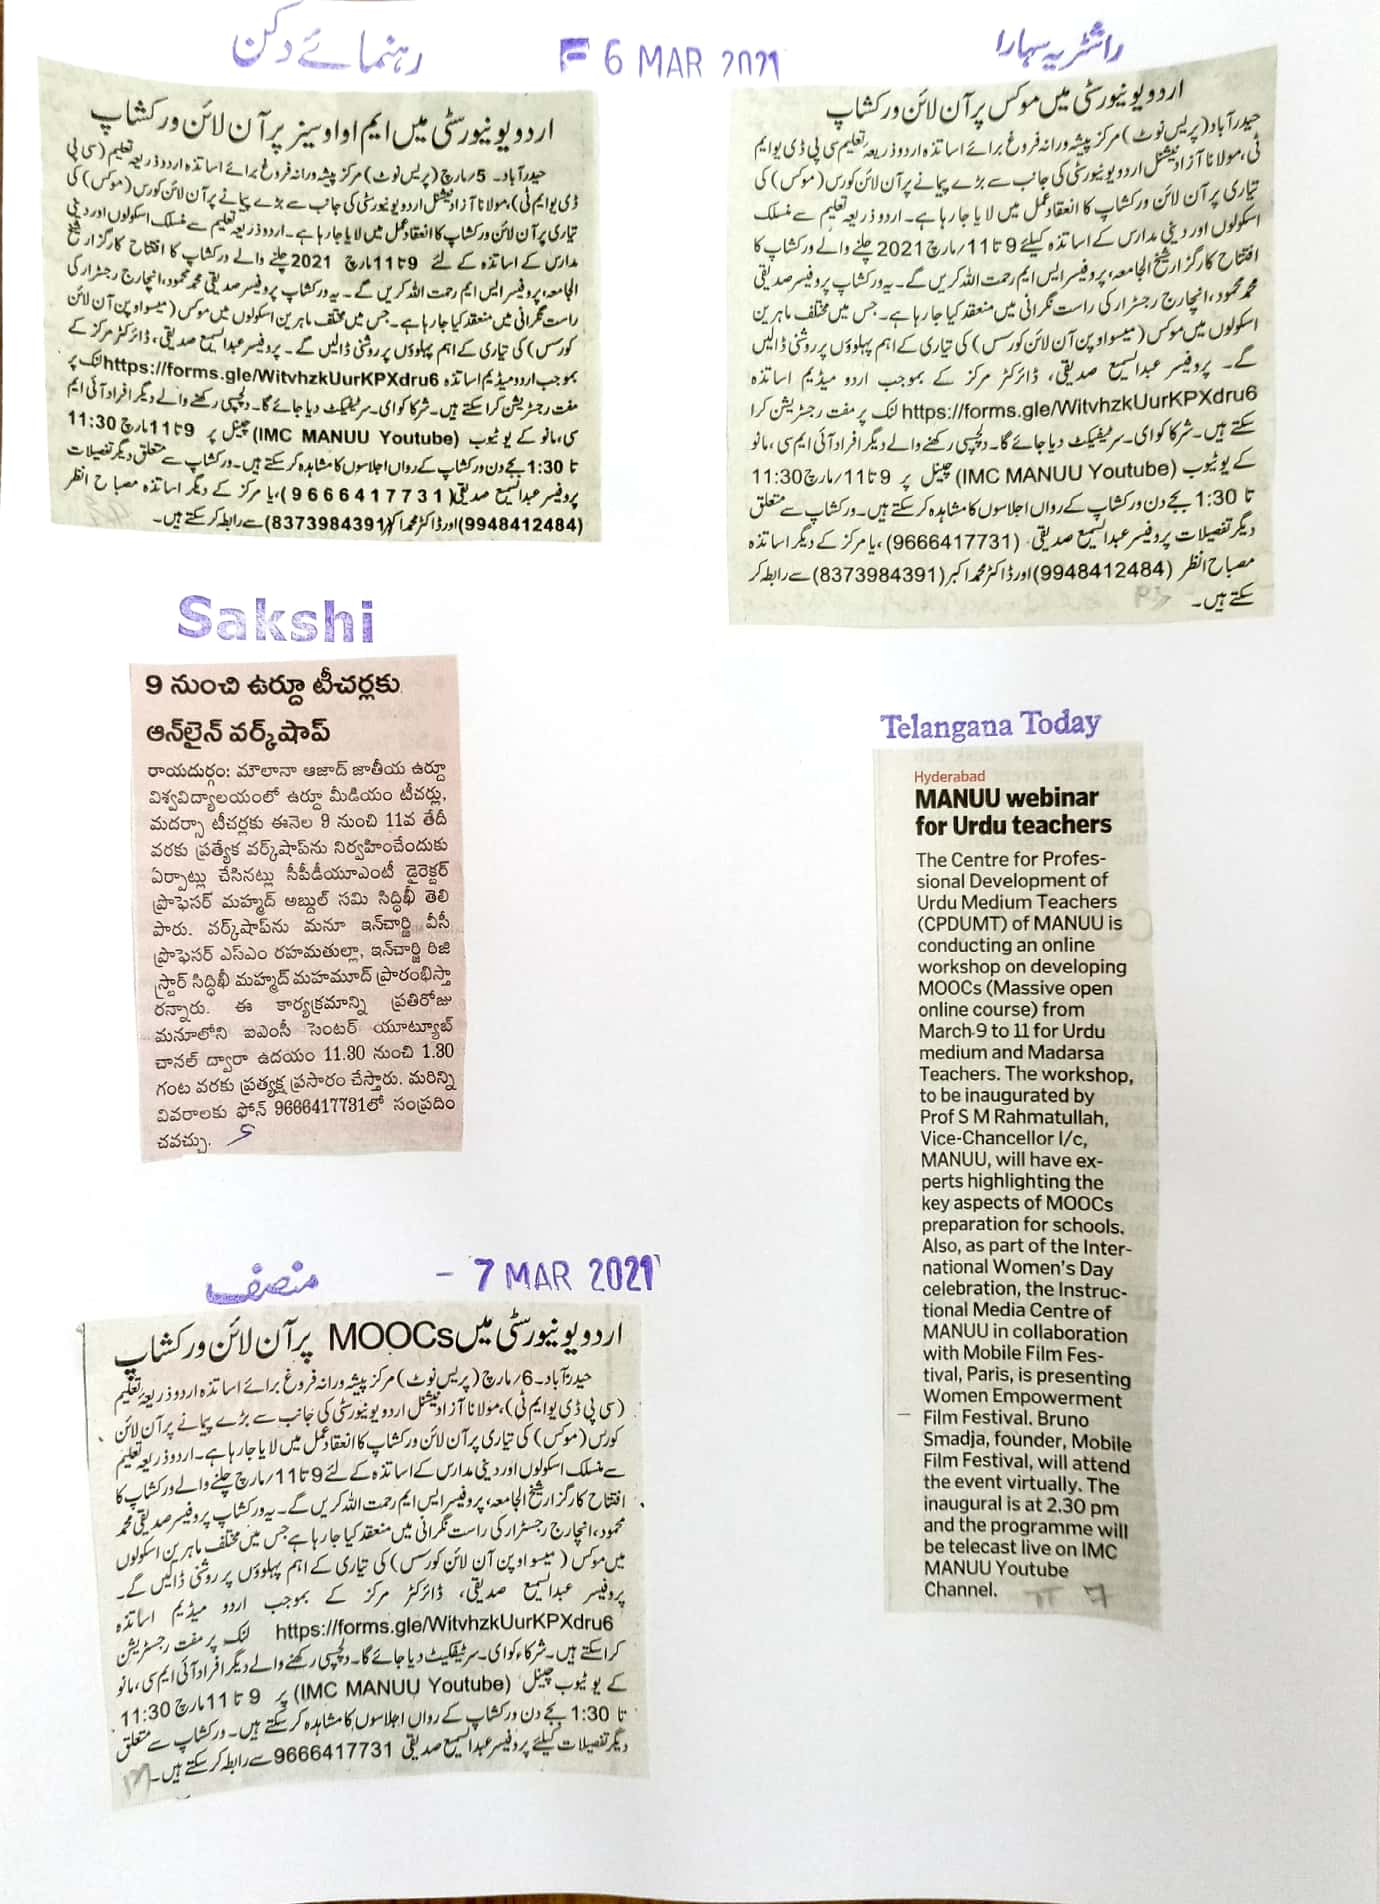 رہنمائے دکن
6 MAR 2021
راشٹریہ سہارا
اردو یونیورسٹی میں ایم او اوسیز پر آن لائن ورکشاپ
حیدرآباد۔ 5/مارچ (پریس نوٹ) مرکز پیشہ ورانہ فروغ برائے اساتذہ اردو ذریعہ تعلیم (سی پی
ڈی یو ایم ٹی)، مولانا آزاد نیشنل اردو یونیورسٹی کی جانب سے بڑے پیمانے پر آن لائن کورس (موکس) کی
تیاری پر آن لائن ورکشاپ کا انعقاد عمل میں لایا جا رہا ہے۔ اردو ذریعہ تعلیم سے منسلک اسکولوں اور دینی
مدارس کے اساتذہ کے لئے 9 تا 11 مارچ 2021 چلنے والے ورکشاپ کا افتتاح کارگزار شیخ
الجامعہ، پروفیسر ایس ایم رحمت اللہ کریں گے۔ یہ ورکشاپ پروفیسر صدیقی محمد محمود، انچارج رجسٹرار کی
راست نگرانی میں منعقد کیا جا رہا ہے۔ جس میں مختلف ماہرین اسکولوں میں موکس (میسو اوپن آن لائن
کورسس) کی تیاری کے اہم پہلوؤں پر روشنی ڈالیں گے۔ پروفیسر عبدالسمیع صدیقی، ڈائرکٹر مرکز کے
بموجب اردو میڈیم اساتذہ https://forms.gle/WitvhzkUurKPXdru6 لنک پر
مفت رجسٹریشن کرا سکتے ہیں۔ شرکا کو ای۔ سرٹیفکیٹ دیا جائے گا۔ دلچسپی رکھنے والے دیگر افراد آئی ایم
سی، مانو کے یوٹیوب (IMC MANUU Youtube) چینل پر 9 تا 11 مارچ 11:30
تا 1:30 بجے دن ورکشاپ کے رواں اجلاسوں کا مشاہدہ کر سکتے ہیں۔ ورکشاپ سے متعلق دیگر تفصیلات
پروفیسر عبدالسمیع صدیقی (9666417731)، یا مرکز کے دیگر اساتذہ مصباح انظر
(9948412484) اور ڈاکٹر محمد اکبر (8373984391) سے رابطہ کر سکتے ہیں۔
اردو یونیورسٹی میں موکس پر آن لائن ورکشاپ
حیدرآباد (پریس نوٹ) مرکز پیشہ ورانہ فروغ برائے اساتذہ اردو ذریعہ تعلیم سی پی ڈی یو ایم
ٹی، مولانا آزاد نیشنل اردو یونیورسٹی کی جانب سے بڑے پیمانے پر آن لائن کورس (موکس) کی
تیاری پر آن لائن ورکشاپ کا انعقاد عمل میں لایا جا رہا ہے۔ اردو ذریعہ تعلیم سے منسلک
اسکولوں اور دینی مدارس کے اساتذہ کیلئے 9 تا 11/مارچ 2021 چلنے والے ورکشاپ کا
افتتاح کارگزار شیخ الجامعہ، پروفیسر ایس ایم رحمت اللہ کریں گے۔ یہ ورکشاپ پروفیسر صدیقی
محمد محمود، انچارج رجسٹرار کی راست نگرانی میں منعقد کیا جا رہا ہے۔ جس میں مختلف ماہرین
اسکولوں میں موکس (میسو اوپن آن لائن کورسس) کی تیاری کے اہم پہلوؤں پر روشنی ڈالیں
گے۔ پروفیسر عبدالسمیع صدیقی، ڈائرکٹر مرکز کے بموجب اردو میڈیم اساتذہ
https://forms.gle/WitvhzkUurKPXdru6 لنک پر مفت رجسٹریشن کرا
سکتے ہیں۔ شرکا کو ای۔ سرٹیفکیٹ دیا جائے گا۔ دلچسپی رکھنے والے دیگر افراد آئی ایم سی، مانو
کے یوٹیوب (IMC MANUU Youtube) چینل پر 9 تا 11/مارچ 11:30
تا 1:30 بجے دن ورکشاپ کے رواں اجلاسوں کا مشاہدہ کر سکتے ہیں۔ ورکشاپ سے متعلق
دیگر تفصیلات پروفیسر عبدالسمیع صدیقی (9666417731)، یا مرکز کے دیگر اساتذہ
مصباح انظر (9948412484) اور ڈاکٹر محمد اکبر (8373984391) سے رابطہ کر
سکتے ہیں۔
Sakshi
9 నుంచి ఉర్దూ టీచర్లకు
ఆన్‌లైన్ వర్క్‌షాప్
రాయదుర్గం: మౌలానా ఆజాద్ జాతీయ ఉర్దూ
విశ్వవిద్యాలయంలో ఉర్దూ మీడియం టీచర్లు,
మదర్సా టీచర్లకు ఈనెల 9 నుంచి 11వ తేదీ
వరకు ప్రత్యేక వర్క్‌షాప్‌ను నిర్వహించేందుకు
ఏర్పాట్లు చేసినట్లు సీపీడీయూఎంటీ డైరెక్టర్
ప్రొఫెసర్ మహ్మద్ అబ్దుల్ సమి సిద్ధిఖీ తెలి
పారు. వర్క్‌షాప్‌ను మనూ ఇన్‌చార్జి వీసీ
ప్రొఫెసర్ ఎస్ఎం రహమతుల్లా, ఇన్‌చార్జి రిజి
స్ట్రార్ సిద్ధిఖీ మహ్మద్ మహమూద్ ప్రారంభిస్తా
రన్నారు. ఈ కార్యక్రమాన్ని ప్రతిరోజు
మనూలోని ఐఎంసీ సెంటర్ యూట్యూబ్
చానల్ ద్వారా ఉదయం 11.30 నుంచి 1.30
గంట వరకు ప్రత్యక్ష ప్రసారం చేస్తారు. మరిన్ని
వివరాలకు ఫోన్ 9666417731లో సంప్రదిం
చవచ్చు.
Telangana Today
Hyderabad
MANUU webinar
for Urdu teachers
The Centre for Profes-
sional Development of
Urdu Medium Teachers
(CPDUMT) of MANUU is
conducting an online
workshop on developing
MOOCs (Massive open
online course) from
March 9 to 11 for Urdu
medium and Madarsa
Teachers. The workshop,
to be inaugurated by
Prof S M Rahmatullah,
Vice-Chancellor I/c,
MANUU, will have ex-
perts highlighting the
key aspects of MOOCs
preparation for schools.
Also, as part of the Inter-
national Women's Day
celebration, the Instruc-
tional Media Centre of
MANUU in collaboration
with Mobile Film Fes-
tival, Paris, is presenting
Women Empowerment
Film Festival. Bruno
Smadja, founder, Mobile
Film Festival, will attend
the event virtually. The
inaugural is at 2.30 pm
and the programme will
be telecast live on IMC
MANUU Youtube
Channel.
منصف
- 7 MAR 2021
اردو یونیورسٹی میں MOOCs پر آن لائن ورکشاپ
حیدرآباد۔ 6/مارچ (پریس نوٹ) مرکز پیشہ ورانہ فروغ برائے اساتذہ اردو ذریعۂ تعلیم
(سی پی ڈی یو ایم ٹی)، مولانا آزاد نیشنل اردو یونیورسٹی کی جانب سے بڑے پیمانے پر آن لائن
کورس (موکس) کی تیاری پر آن لائن ورکشاپ کا انعقاد عمل میں لایا جا رہا ہے۔ اردو ذریعہ تعلیم
سے منسلک اسکولوں اور دینی مدارس کے اساتذہ کے لئے 9 تا 11/مارچ چلنے والے ورکشاپ کا
افتتاح کارگزار شیخ الجامعہ، پروفیسر ایس ایم رحمت اللہ کریں گے۔ یہ ورکشاپ پروفیسر صدیقی محمد
محمود، انچارج رجسٹرار کی راست نگرانی میں منعقد کیا جا رہا ہے جس میں مختلف ماہرین اسکولوں
میں موکس (میسو اوپن آن لائن کورسس) کی تیاری کے اہم پہلوؤں پر روشنی ڈالیں گے۔
پروفیسر عبدالسمیع صدیقی، ڈائرکٹر مرکز کے بموجب اردو میڈیم اساتذہ
https://forms.gle/WitvhzkUurKPXdru6 لنک پر مفت رجسٹریشن
کرا سکتے ہیں۔ شرکاء کو ای۔ سرٹیفکیٹ دیا جائے گا۔ دلچسپی رکھنے والے دیگر افراد آئی ایم سی، مانو
کے یوٹیوب چینل (IMC MANUU Youtube) پر 9 تا 11 مارچ 11:30
تا 1:30 بجے دن ورکشاپ کے رواں اجلاسوں کا مشاہدہ کر سکتے ہیں۔ ورکشاپ سے متعلق
دیگر تفصیلات کیلئے پروفیسر عبدالسمیع صدیقی 9666417731 سے رابطہ کر سکتے ہیں۔